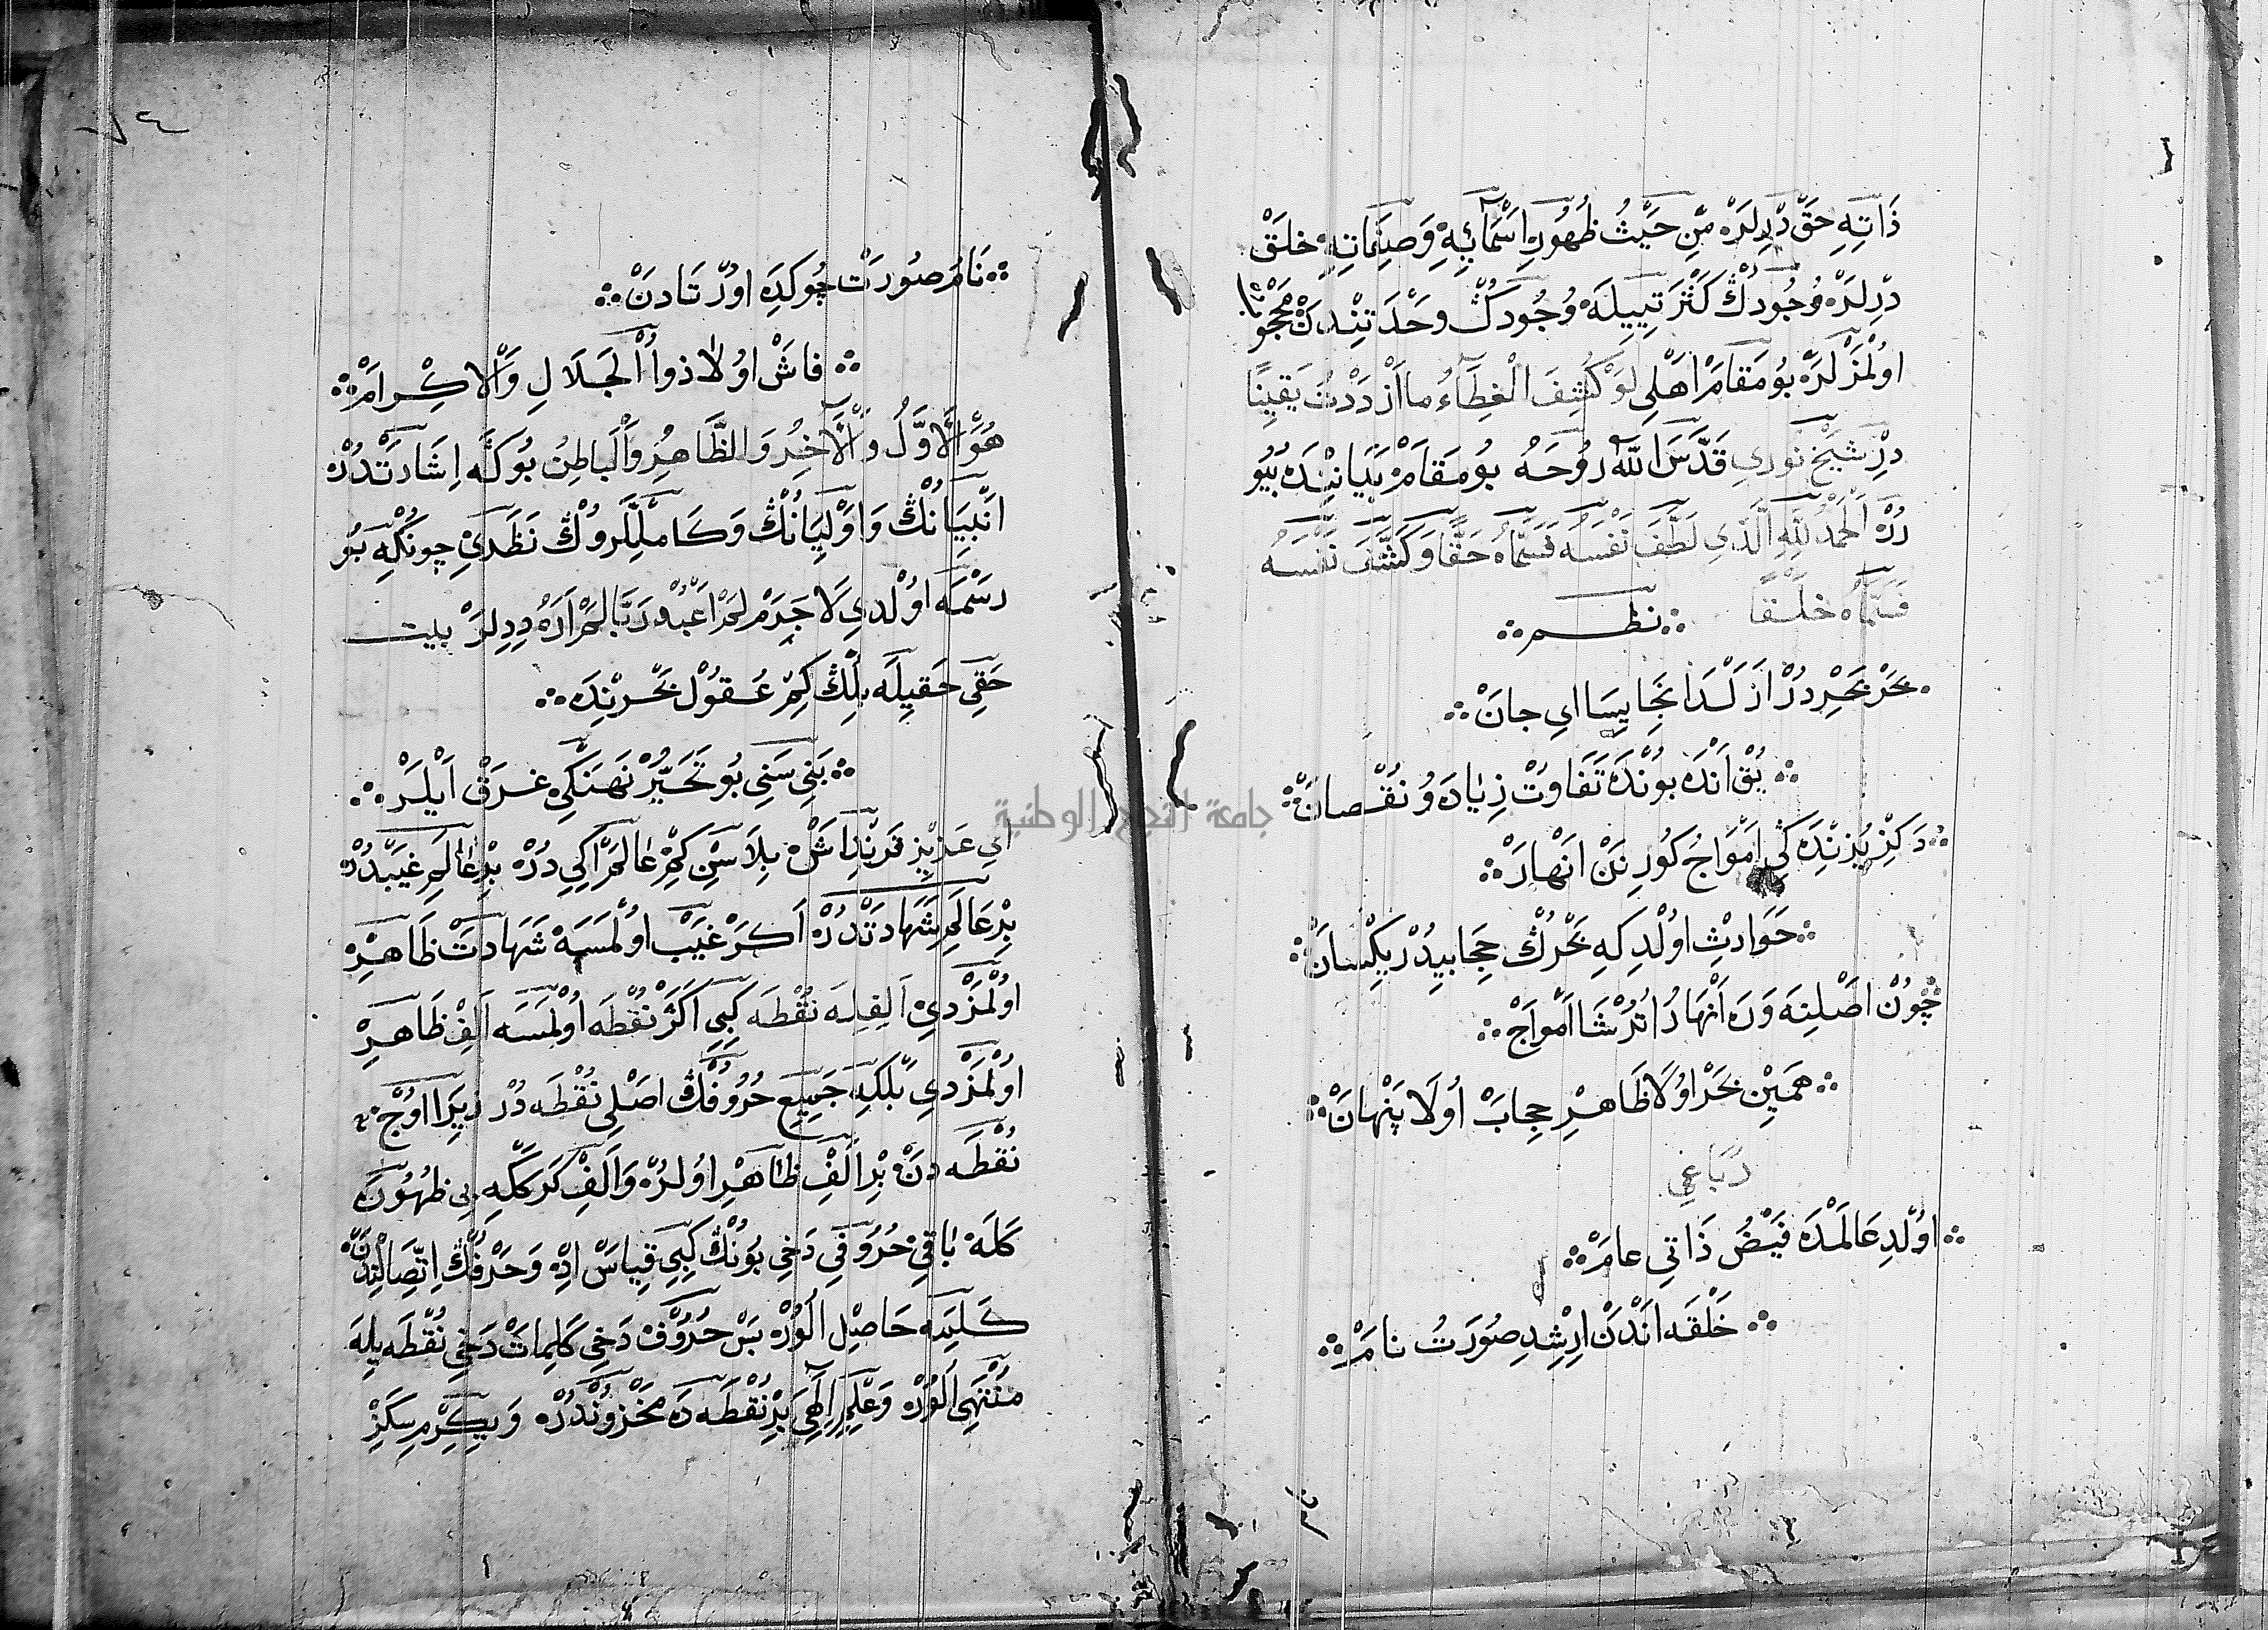 ذَاتِهِ حَقْ دِرلَرْ مِنْ حَيْثُ ظُهُورِ اَسْمَائِهِ وَصِفَاتِهِ خلَقْ
دِرلَرْ وُجُودُكْ كَثْرَتِيلَه وُجُودُكْ وَحْدَتِنْدَنْ مَحْجُوبْ
اوُلْمَزْلَرْ بُو مَقَامْ اَهْلِى لَوْ كُشِفَ الْغِطَاءُ مَا ازْدَدْتُ يَقِينًا
دِرْ شَيْخ نوُرِي قَدَّسَ اللّٰهُ رُوحَهُ بُو مَقَامْ بَيَانِنْدَه بُيُو
رُرْ اَلْحَمْدُ لِلّٰهِ الَّذِي لَطَّفَ نَفْسَهُ فَسَمَّاهُ حَقًّا وَكَثَّفَ نَفْسَهُ
فَسَمَّاهُ خَلْقًا ∴ نظم ∴
بَحْرْ بَحْرِدُرْ اَزَلْدَا نَجَا يِيسَا اي جانْ ∴
∴ يُقْ اَنْدَه بوُنْدَه تَفَاوُتْ زِيَادَه وُ نُقْصَانْ ∴
∴ دَكِزْ يُزِنْدَه كِي اَمْوَاجُ كُورِنَنْ اَنْهَارْ ∴
∴ حَوَادِثْ اوُلْدِكِه بَحْرُكْ حِجَابِيدُرْ يَكْسَانْ ∴
∴ چُونْ اَصْلِنَه وَرَه اَنْهَارُ اُتُرْشَا اَمْوَاجْ ∴
∴ هَمِينْ بَحْرْ اوُلَا ظَاهِرْ حِجِابْ اُولَا پَنْهَانْ ∴
رُبَاعِي
∴ اوُلْدِ عَالَمْدَه فَيْضُ ذَاتِي عامْ ∴
∴ خَلْقَه اَنْدَنْ اِرِشْدِ صُورَتُ نامْ ∴
لون
٧٤
∴ نَامُ صُورَتْ چُو كِدَه اوُرْتَادَنْ ∴
∴ فاشْ اوُلَا ذوُ اْلجَلَالِ وَاْلاكِْرامْ ∴
هُوَ اْلاَوَّلُ وَاْلآخِرُ وَالظَّاهِرُ وَاْلبَاطِنُ بُوكَه اِشَارَتْدُرْ
اَنْبِيَانُكْ وَاوْلِيَانُكْ وَكَامِلْلَرُوكْ نَظَرِي چونْكِه بُو
رَسْمَه اوُلْدِي لَا جَرَمْ لَمْ اَعْبُدْ رَبًّا لَمْ اَرَهُ دِدِلَرْ بيت
حَقِي حَقِيلَه بِلِكْ كِمْ عُقوُلْ بَحْرِنْدَه ∴
∴ بَنِي سَنِي بُو تَحَيُّرْ نَهَنْكِي غَرَقْ اَيْلَرْ ∴
جامعة النجاح الوطنية
اَي عَزِيزِ قَرِنْدَاشْ بِلَاسِنْ كِمْ عَالَمْ اِكِي دُرْ بِرْ عَالَمِ غَيْبْدُرْ
بِرْ عَالَمِ شَهَادَتْدُرْ اَكَرْ غَيْبْ اوُلْمَسَه شَهَادَتْ ظَاهِرْ
اوُلْمَزْدِي اَلِفِلَه نُقْطَه كِبِي اَكَرْ نُقْطَه اوُلْمَسَه اَلِفْ ظَاهِرْ
اوُلْمَزْدِي بَلْكِه جَمِيعِ حُرُوفُكْ اَصْلِي نُقْطَه دُرْ زِيرَا اوُچْ
نُقْطَه دَنْ بِرْ اَلِفْ ظَاهِرْ اوُلُرْ وَاَلِفْ كِرَكَلِّه بِي ظُهُورَه
كَلَه بَاقِي حُرُوفِي دَخِي بُونُكْ كِبِي قِيَاسْ اِدْ وَحَرْفُكْ اِتِّصَالِنْدَنْ
كَلِمَه حَاصِلْ اُلوُرْ بَسْ حُرُوفْ دَخِي كَلِمَاتْ دَخِي نُقْطَه يِلَه
مُنْتَهِي اُلوُرْ وَعِلْمِ اِلٰهِي بِرْ نُقْطَه دَه مَخْزُونْدُرْ وَيِكِرْمِ سِكِزْ